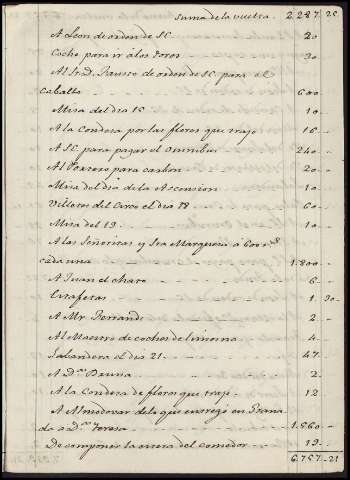 Suma de la vuelta.. 2.287..26
A Leon de orden de SC. 20
Coche para ir a los Toros 30
Al Sr. D. Fausto de orden de SC. para el
caballo 600
Misa del dia 15 10
A la Condesa por las flores que trajo 16
A SC. para pagar el omnibus 240
Al Portero para carbon 20
Misa del dia de la Ascension 10
Villetes del Circo el dia 18 60
Misa del 19 10
A las Señoritas y Sra Marquesa á 600 rs
cada una 1.800
A Juan el charo 6
Estafetas 1..30
A Mr. Bertrand 2
Al Maestro de coches de limosna 4
Lavandera el dia 21 47
A Dn. 2
A la Condesa de flores que trajo 12
A Almodovar de lo que entregó en Grana
da a Da. Teresa 1.560
De componer la estera del comedor 19
6.757..21